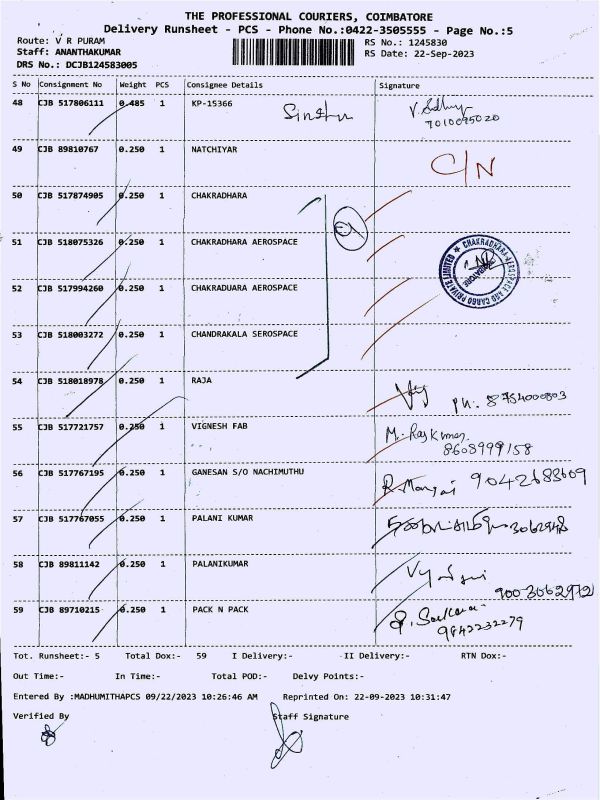 THE PROFESSIONAL COURIERS, COIMBATORE
Delivery Runsheet - PCS - Phone No.:0422-3505555 - Page No.:5
Route: V R PURAM
RS No.: 1245830
Staff: ANANTHAKUMAR
RS Date: 22-Sep-2023
DRS No.: DCJB124583005
S No Consignment No Weight PCS Consignee Details Signature
48 CJB 517806111 0.485 1 KP-15366
7010095020
49 CJB 89810767 0.250 1 NATCHIYAR C/N
50 CJB 517874905 0.250 1 CHAKRADHARA
51 CJB 518075326 0.250 1 CHAKRADHARA AEROSPACE
CHAKRADHARA AEROSPACE AND CARGO PRIVATE LIMITED
52 CJB 517994260 0.250 1 CHAKRADUARA AEROSPACE
53 CJB 518003272 0.250 1 CHANDRAKALA SEROSPACE
54 CJB 518018978 0.250 1 RAJA
55 CJB 517721757 0.250 1 VIGNESH FAB M. Raj Kumar
8608999158
56 CJB 517767195 0.250 1 GANESAN S/O NACHIMUTHU
57 CJB 517767055 0.250 1 PALANI KUMAR
58 CJB 89811142 0.250 1 PALANIKUMAR
9003062972
59 CJB 89710215 0.250 1 PACK N PACK
9842232279
Tot. Runsheet:- 5 Total Dox:- 59 I Delivery:- II Delivery:- RTN Dox:-
Out Time:- In Time:- Total POD:- Delvy Points:-
Entered By :MADHUMITHAPCS 09/22/2023 10:26:46 AM Reprinted On: 22-09-2023 10:31:47
Verified By Staff Signature